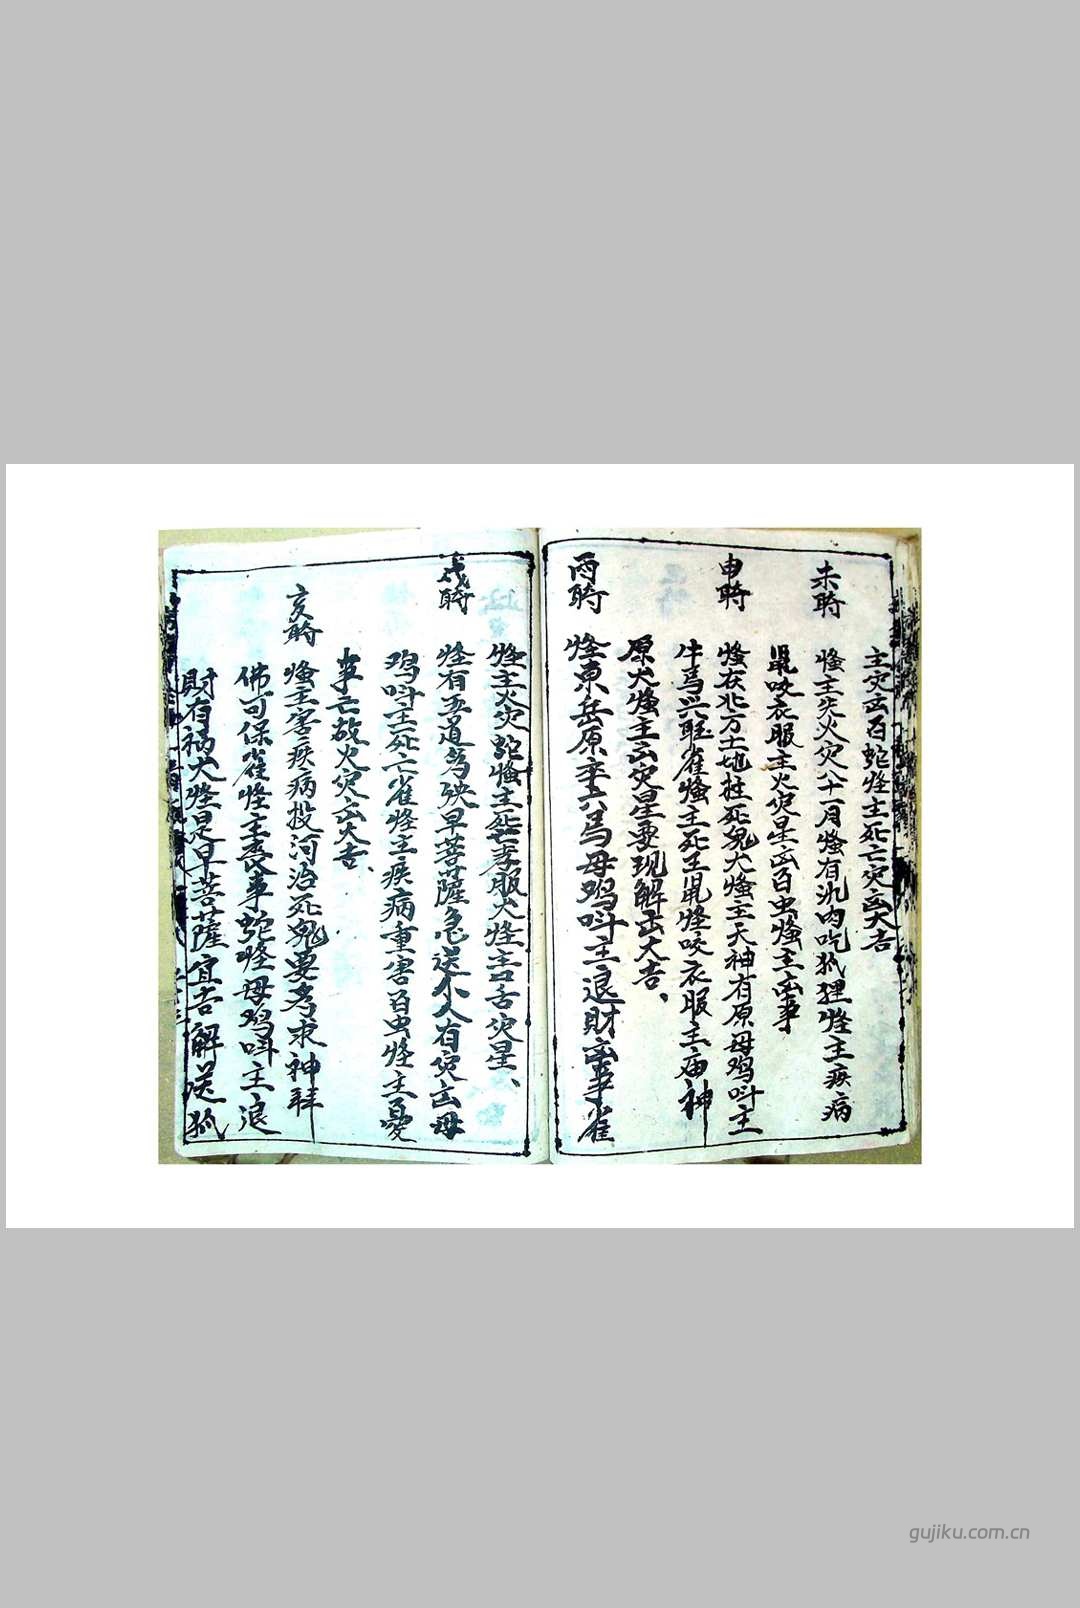 主灾凶百蛇怪主死亡灾凶大吉
未時
怪主失火灾八十一月怪有汎肉吃狐狸怪主疾病
鼠咬衣服主火灾星凶百虫怪主凶事
申時
怪在北方土地拄死鬼犬怪主天神有原母鸡呌主
牛馬兴旺雀怪主死主鼠怪咬衣服主庙神
原犬怪主凶灾星要现解出大吉、
酉時
怪東岳原李六馬母鸡呌主退財凶事雀
怪主火灾蛇怪主死亡孝服犬怪主口舌灾星、
戌時
怪有五道為殃早菩薩急送不人有灾凶母
鸡呌主死亡雀怪主疾病重害百虫怪主憂
事亡故火灾凶大吉、
亥時
怪主害疾病投河治死鬼要考求神拜
佛可保雀怪主喪事蛇怪母鸡呌主退
財有祸犬怪是早菩薩宜吉解送狐
gujiku.com.cn